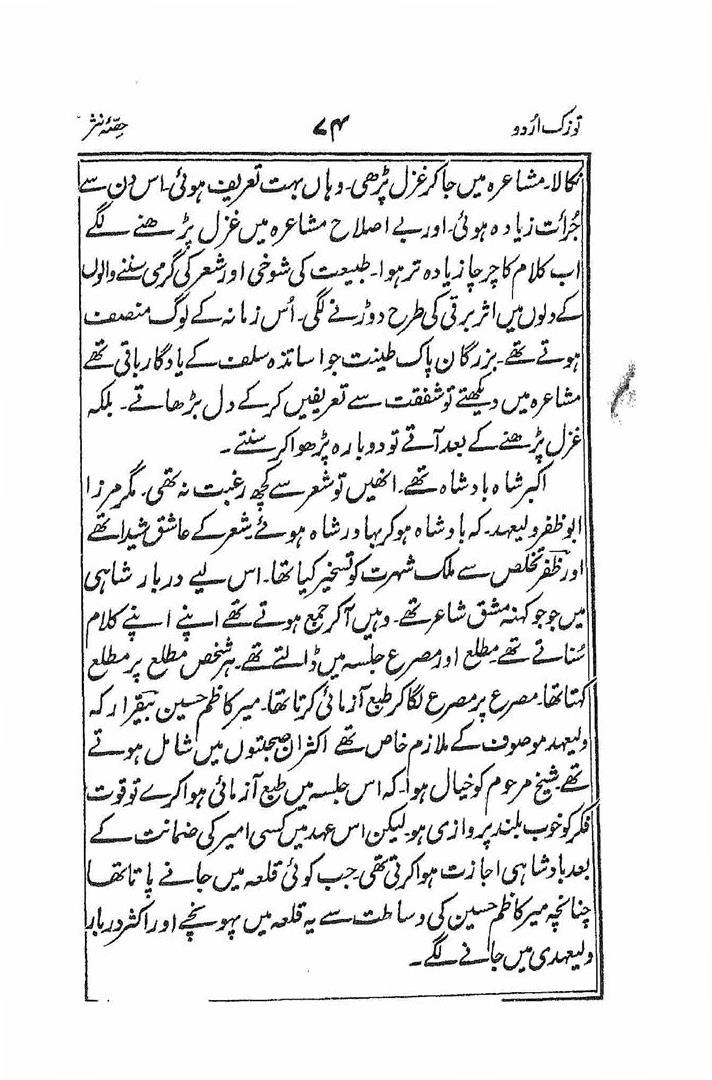 توزک اُردو ۷۴ حصّۂ نثر
نکالا۔ مشاعرہ میں جاکر غزل پڑھی۔ وہاں بہت تعریف ہوئی۔ اس دن سے
جُرأت زیادہ ہوئی۔ اور بے اصلاح مشاعرہ میں غزل پڑھنے لگے
اب کلام کا چرچا زیادہ تر ہوا۔ طبیعت کی شوخی اور شعر کی گرمی سننے والوں
کے دلوں میں اثر برقی کی طرح دوڑنے لگی۔ اُس زمانہ کے لوگ منصف
ہوتے تھے۔ بزرگان پاک طینت جو اساتذہ سلف کے یادگار باقی تھے
مشاعرہ میں دیکھتے تو شفقت سے تعریفیں کرکے دل بڑھاتے۔ بلکہ
غزل پڑھنے کے بعد آتے تو دوبارہ پڑھوا کر سنتے۔
اکبر شاہ بادشاہ تھے۔ انھیں تو شعر سے کچھ رغبت نہ تھی۔ مگر مرزا
ابوظفر ولیعہد۔ کہ بادشاہ ہوکر بہادر شاہ ہوئے۔ شعر کے عاشق شیدا تھے
اور ظفر تخلص سے ملک شہرت کو تسخیر کیا تھا۔ اس لیے دربار شاہی
میں جو جو کہنہ مشق شاعر تھے۔ وہیں آکر جمع ہوتے تھے اپنے اپنے کلام
سُناتے تھے۔ مطلع اور مصرع جلسہ میں ڈالتے تھے۔ ہر شخص مطلع پر مطلع
کہتا تھا۔ مصرع پر مصرع لگا کر طبع آزمائی کرتا تھا۔ میر کاظم حسین بیقرار کہ
ولیعہد موصوف کے ملازم خاص تھے اکثر ان صحبتوں میں شامل ہوتے
تھے۔ شیخ مرحوم کو خیال ہوا۔ کہ اس جلسہ میں طبع آزمائی ہوا کرے تو قوت
فکر کو خوب بلند پروازی ہو۔ لیکن اس عہد میں کسی امیر کی ضمانت کے
بعد بادشاہی اجازت ہوا کرتی تھی۔ جب کوئی قلعہ میں جانے پاتا تھا
چنانچہ میر کاظم حسین کی وساطت سے یہ قلعہ میں پہونچے اور اکثر دربار
ولیعہدی میں جانے لگے۔